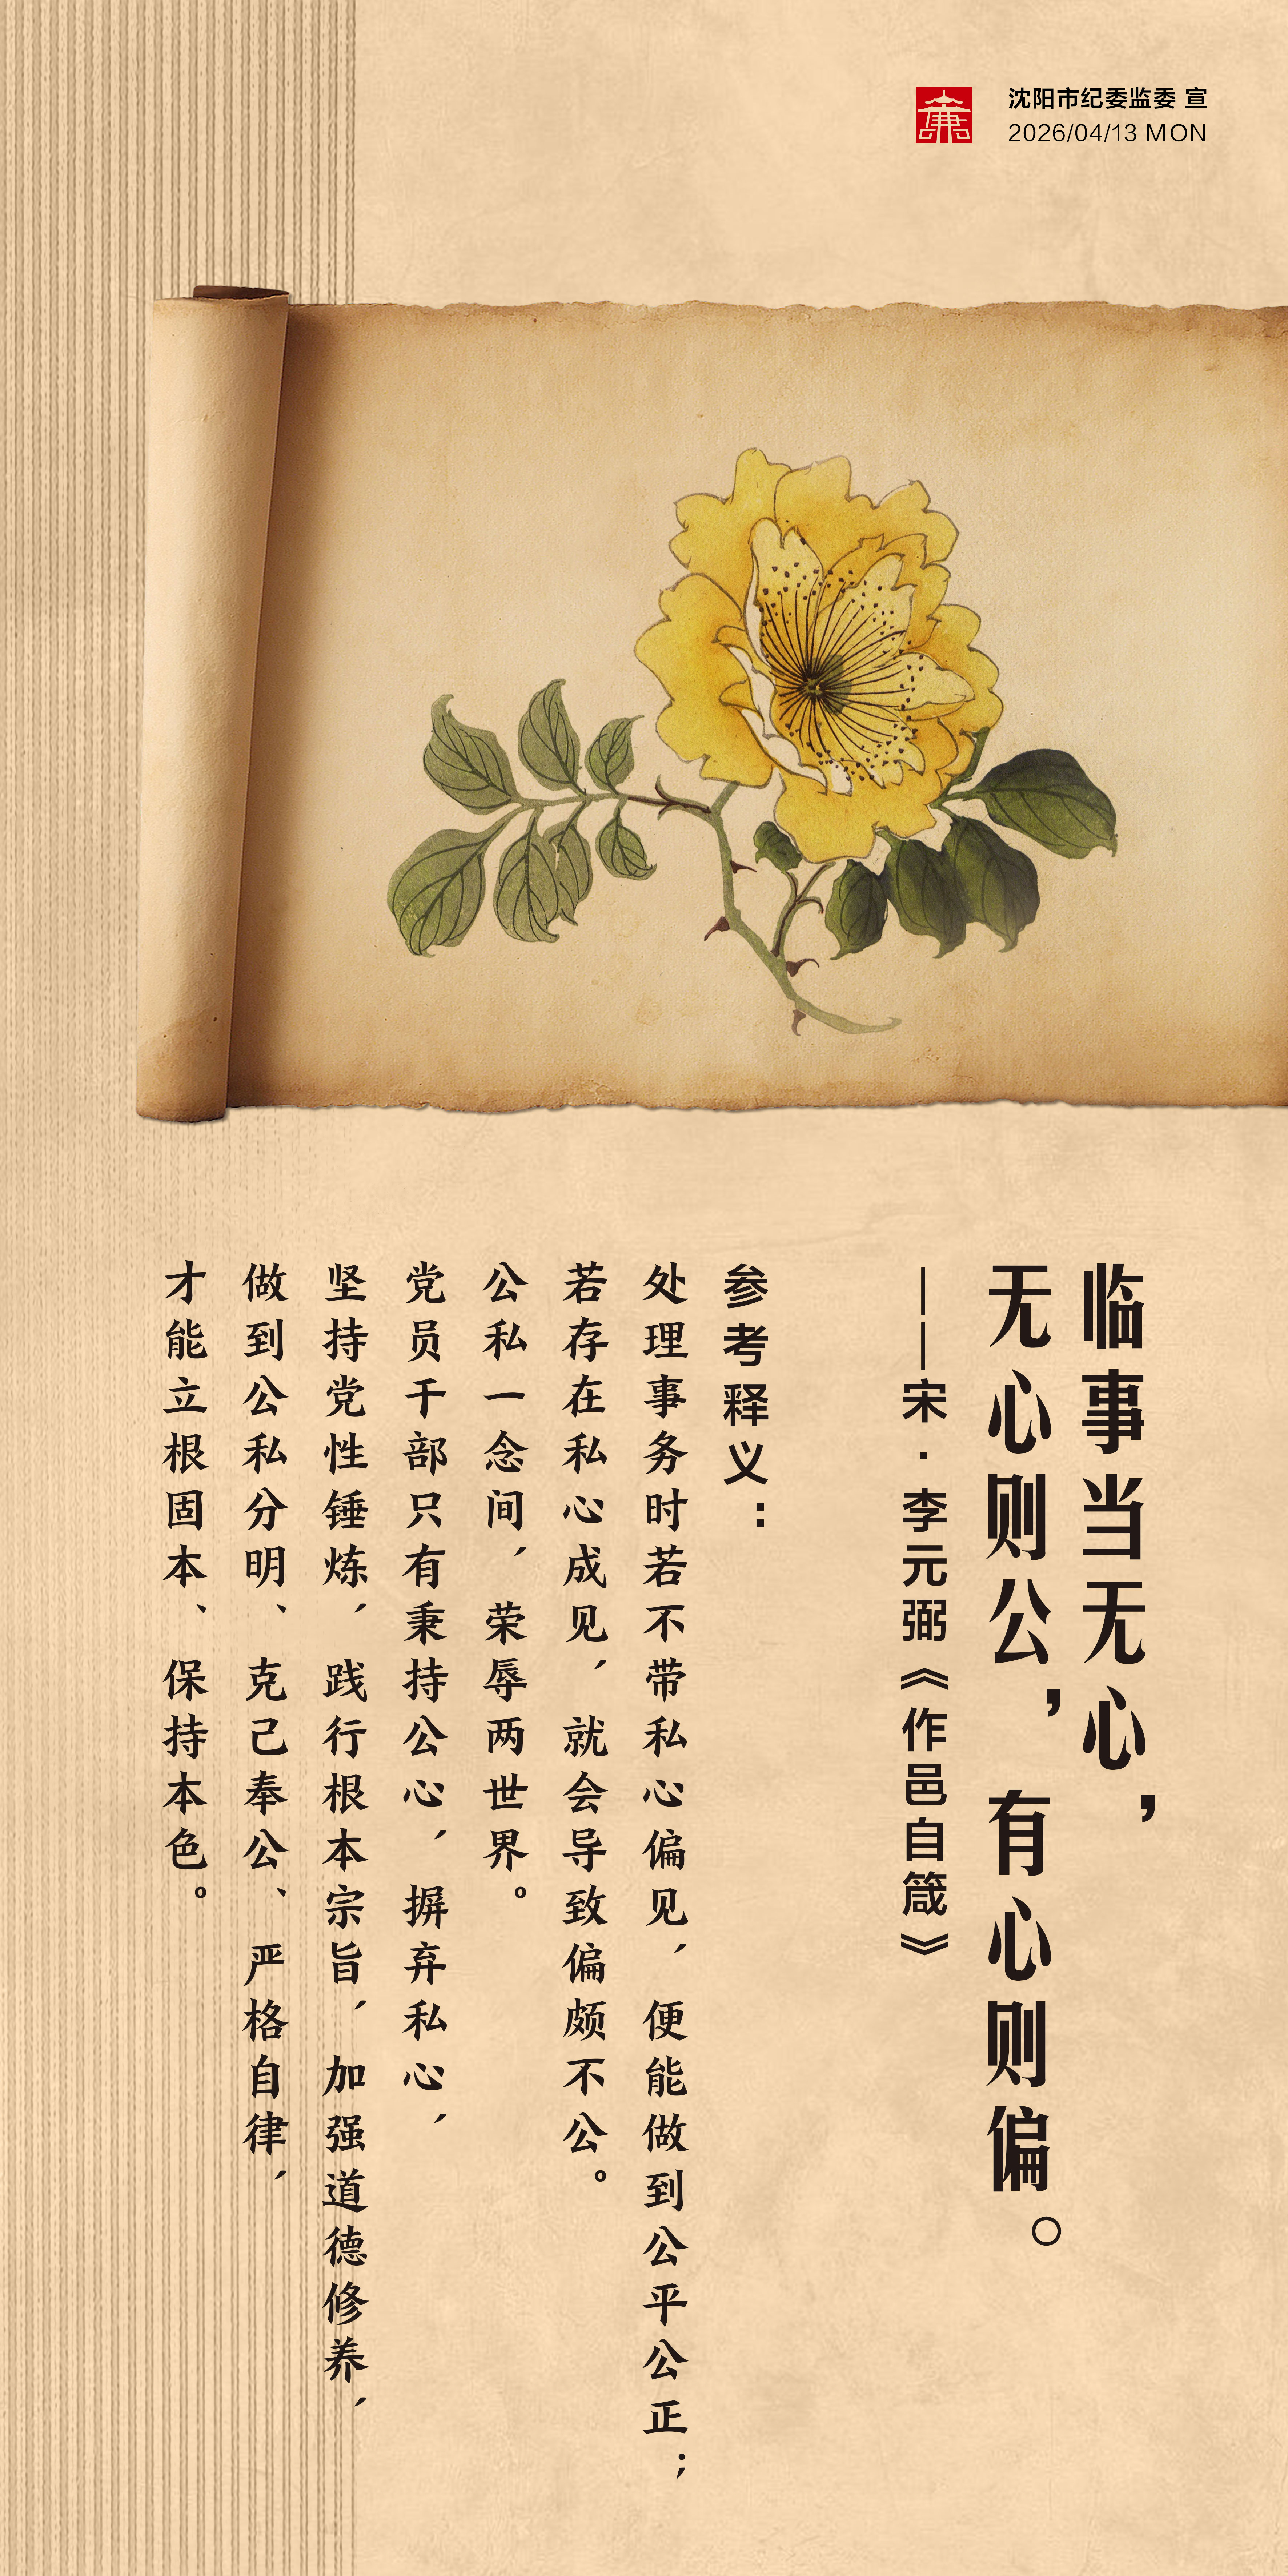 沈阳市纪委监委 宣
2026/04/13 MON
临事当无心，
无心则公，有心则偏。
——宋·李元弼《作邑自箴》
参考释义：
处理事务时若不带私心偏见，便能做到公平公正；
若存在私心成见，就会导致偏颇不公。
公私一念间，荣辱两世界。
党员干部只有秉持公心，摒弃私心，
坚持党性锤炼，践行根本宗旨，加强道德修养，
做到公私分明、克己奉公、严格自律，
才能立根固本、保持本色。